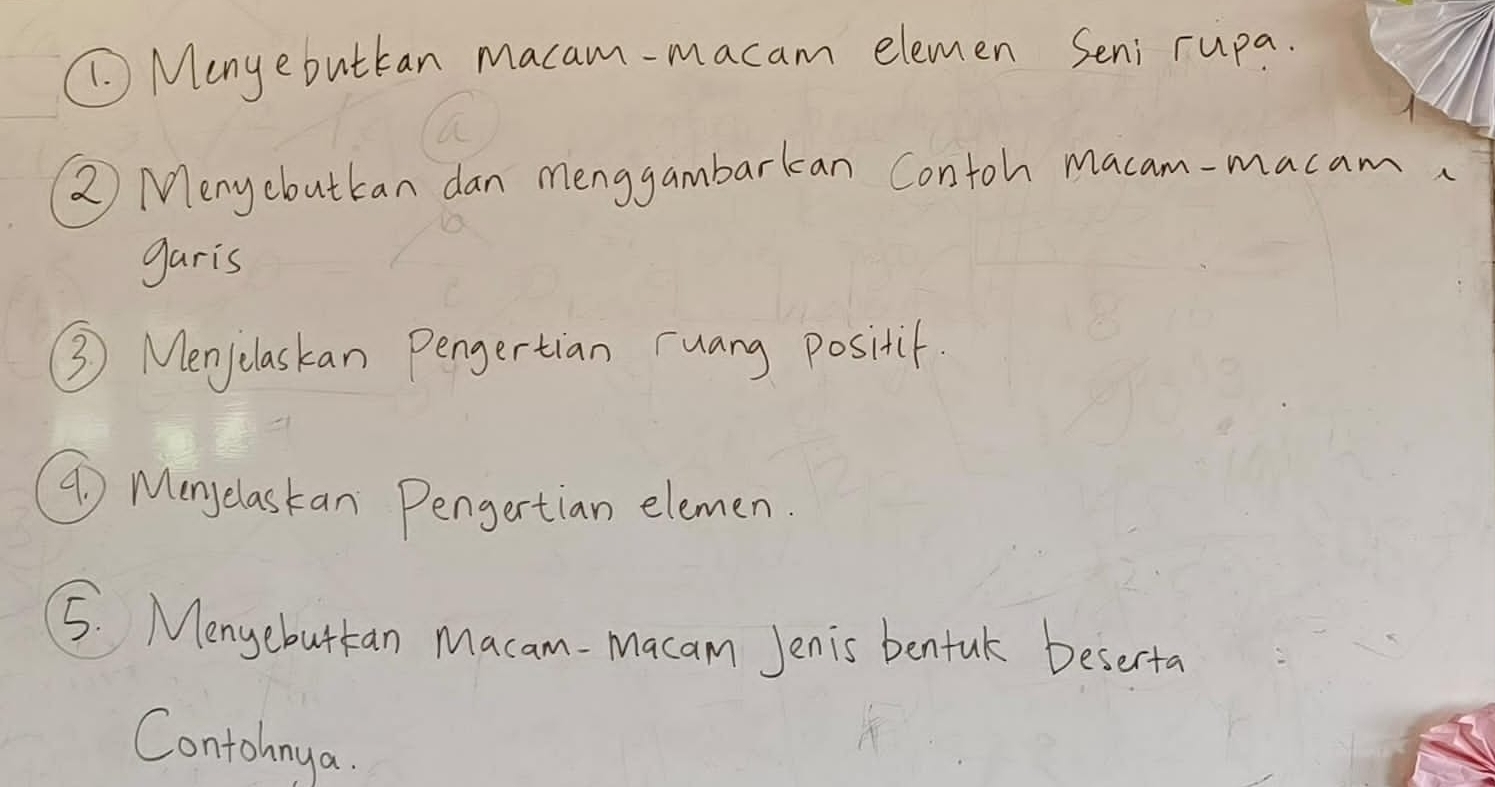 1. Menyebutkan macam-macam elemen seni rupa.
2 Menyebutkan dan menggambarkan contoh macam-macam
garis
3. Menjelaskan pengertian ruang positif.
4. Menjelaskan pengertian elemen.
5. Menyebutkan macam-macam jenis bentuk beserta
contohnya.